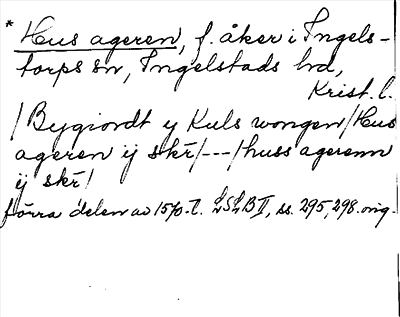 * Hus ageren, f. åker i Ingels-
torps sn, Ingelstads hd,
Krist. l.
/Bygiordt ij Kuls wongen/Hus
ageren ij skr̄/---/huss agerenn
ij skr̄/
förra delen av 1570-t. LSLB II, ss. 295, 298. orig.